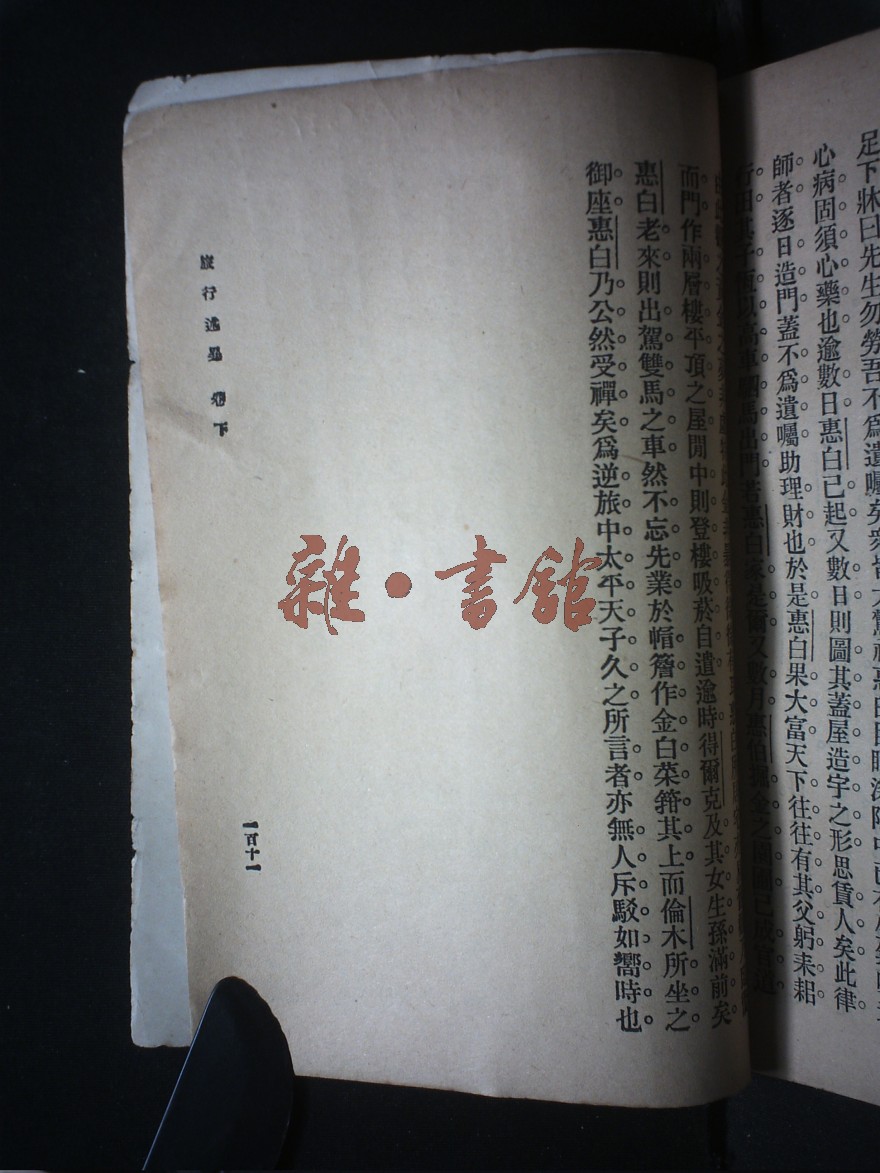 足下牀曰先生勿勞吾不爲遺囑矣衆皆大驚視惠白目眶深陷中
心病固須心藥也逾數日惠白已起又數日則圖其蓋屋造宇之形思賃人矣此律
師者逐日造門蓋不爲遺囑助理財也於是惠白果大富天下往往有其父躬耒耜
馬出門若惠白
又數月惠伯掘金之
而門作兩層樓平頂之屋閒中則登樓吸菸自遣逾時得爾克及其女生孫滿前矣
惠白老來則出駕雙馬之車然不忘先業於帷簷作金白菜箝其上而倫木所坐之
御座惠白乃公然受禪矣爲逆旅中太平天子久之所言者亦無人斥駁如嚮時也
旅行述異 卷下
一百十一
雜·書館